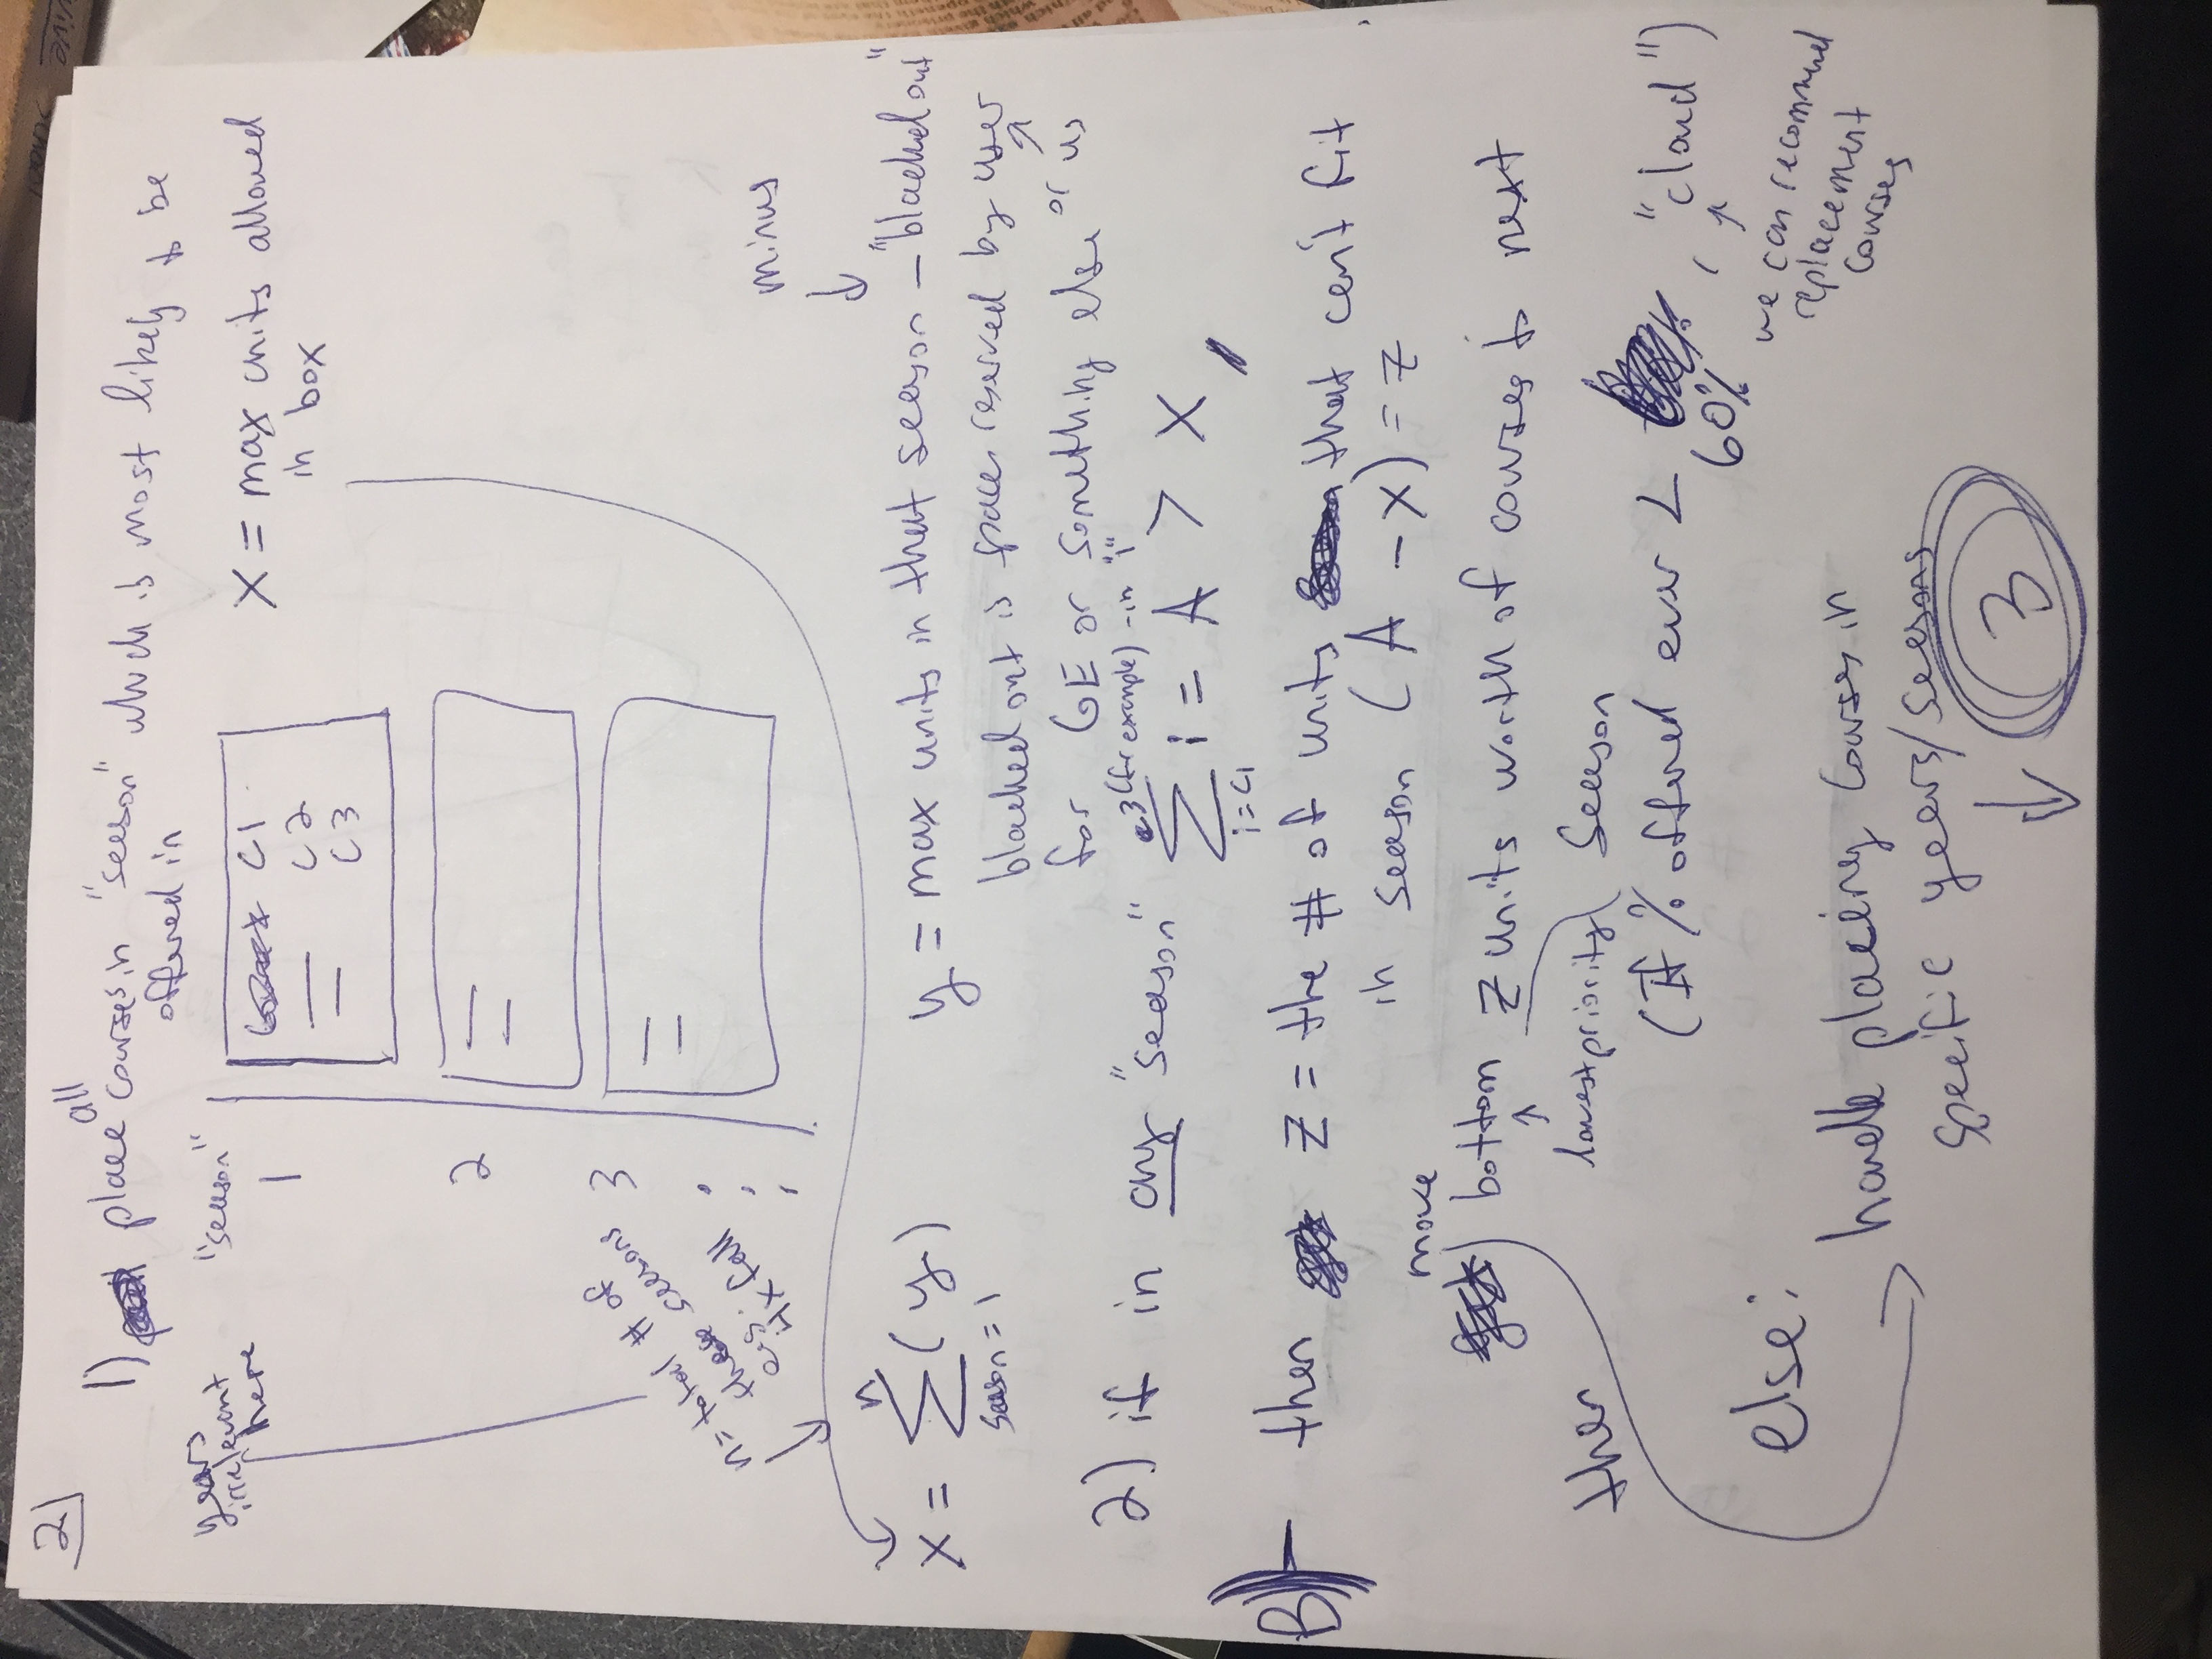 2)
1) place all courses in "season" which is most likely to be
offered in
years
irrelevent
here
"season"
1
C1
C2
C3
2
3
X = max units allowed
in box
n = total # of
seasons
until
minus
X = Σ (y)
n
season = 1
y = max units in that season - "blacked out"
blacked out is space reserved by user
for GE or something else or us
2) if in any "season"
c3 (for example) - in "i"
Σ i = A > X,
i = c1
B)
then Z = the # of units that cant fit
in season (A - X) = Z
move
then
bottom Z units worth of courses to next
lowest priority
season
(If % offered ever < 60%, "cloud")
we can recommend
replacement
courses
else:
handle placing courses in
specific years/seasons
3